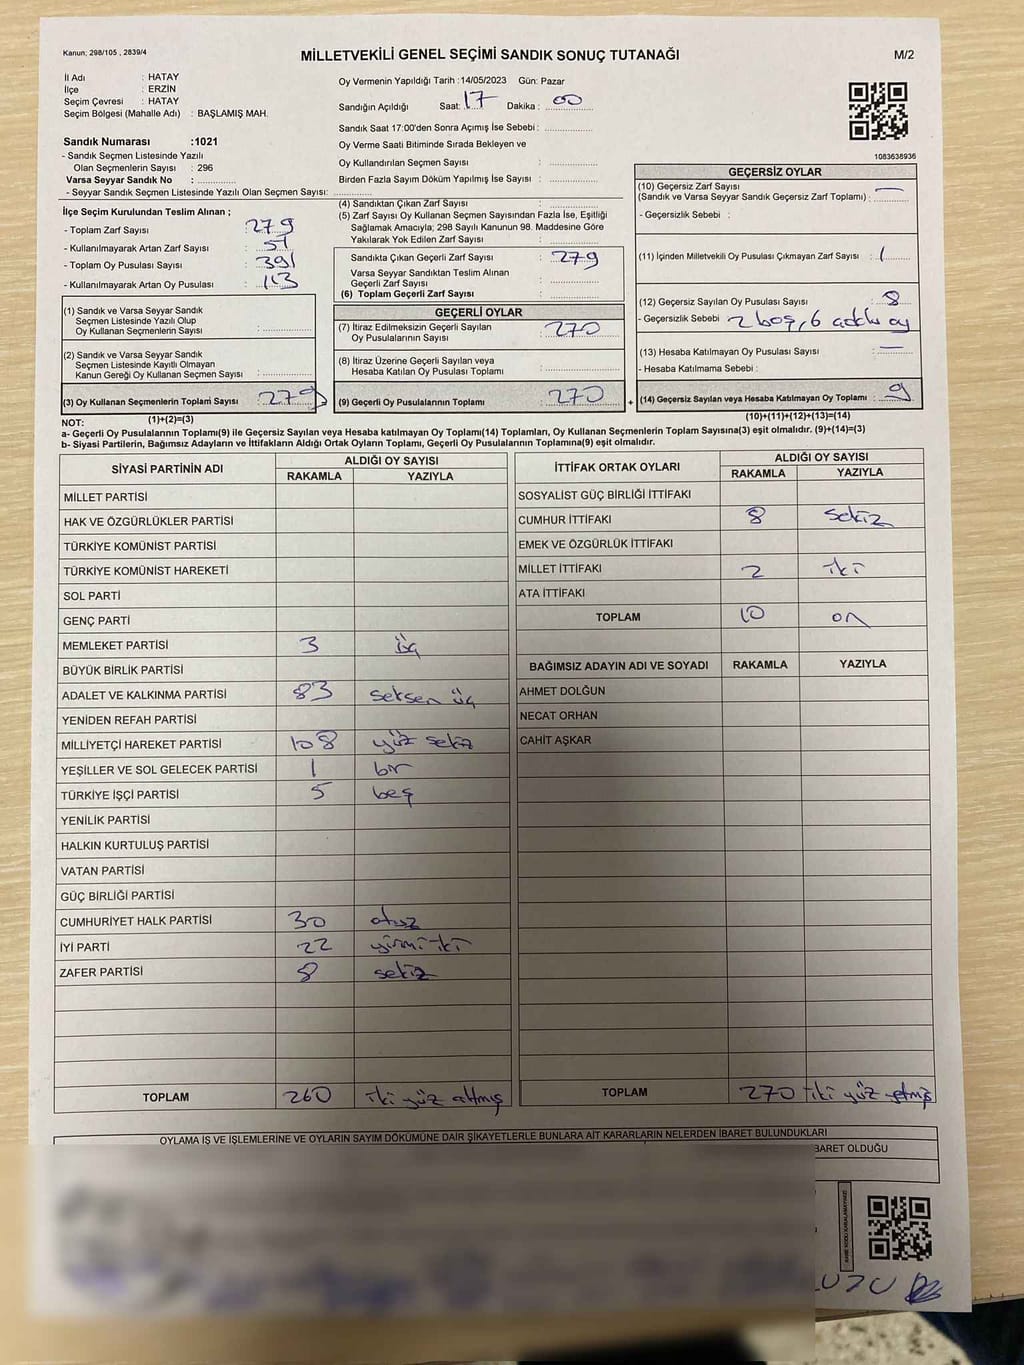 Kanun: 298/105 , 2839/4
MİLLETVEKİLİ GENEL SEÇİMİ SANDIK SONUÇ TUTANAĞI
M/2
İl Adı : HATAY
İlçe : ERZİN
Seçim Çevresi : HATAY
Seçim Bölgesi (Mahalle Adı) : BAŞLAMIŞ MAH.
Oy Vermenin Yapıldığı Tarih :14/05/2023 Gün: Pazar
Sandığın Açıldığı Saat: 17 Dakika : 00
Sandık Saat 17:00'den Sonra Açımış İse Sebebi :
Oy Verme Saati Bitiminde Sırada Bekleyen ve
Oy Kullandırılan Seçmen Sayısı :
Birden Fazla Sayım Döküm Yapılmış İse Sayısı :
Sandık Numarası :1021
- Sandık Seçmen Listesinde Yazılı
Olan Seçmenlerin Sayısı : 296
Varsa Seyyar Sandık No :
- Seyyar Sandık Seçmen Listesinde Yazılı Olan Seçmen Sayısı:
1083638936
İlçe Seçim Kurulundan Teslim Alınan ;
- Toplam Zarf Sayısı : 279
- Kullanılmayarak Artan Zarf Sayısı : 51
- Toplam Oy Pusulası Sayısı : 391
- Kullanılmayarak Artan Oy Pusulası : 113
(1) Sandık ve Varsa Seyyar Sandık
Seçmen Listesinde Yazılı Olup
Oy Kullanan Seçmenlerin Sayısı :
(2) Sandık ve Varsa Seyyar Sandık
Seçmen Listesinde Kayıtlı Olmayan
Kanun Gereği Oy Kullanan Seçmen Sayısı :
(3) Oy Kullanan Seçmenlerin Toplam Sayısı : 279
(1)+(2)=(3)
(4) Sandıktan Çıkan Zarf Sayısı :
(5) Zarf Sayısı Oy Kullanan Seçmen Sayısından Fazla İse, Eşitliği
Sağlamak Amacıyla; 298 Sayılı Kanunun 98. Maddesine Göre
Yakılarak Yok Edilen Zarf Sayısı :
Sandıkta Çıkan Geçerli Zarf Sayısı : 279
Varsa Seyyar Sandıktan Teslim Alınan
Geçerli Zarf Sayısı :
(6) Toplam Geçerli Zarf Sayısı :
GEÇERLİ OYLAR
(7) İtiraz Edilmeksizin Geçerli Sayılan
Oy Pusulalarının Sayısı : 270
(8) İtiraz Üzerine Geçerli Sayılan veya
Hesaba Katılan Oy Pusulası Toplamı :
(9) Geçerli Oy Pusulalarının Toplamı : 270 +
GEÇERSİZ OYLAR
(10) Geçersiz Zarf Sayısı
(Sandık ve Varsa Seyyar Sandık Geçersiz Zarf Toplamı) : —
- Geçersizlik Sebebi :
(11) İçinden Milletvekili Oy Pusulası Çıkmayan Zarf Sayısı : 1
(12) Geçersiz Sayılan Oy Pusulası Sayısı : 8
- Geçersizlik Sebebi : 2 boş, 6 adklı oy
(13) Hesaba Katılmayan Oy Pusulası Sayısı : —
- Hesaba Katılmama Sebebi :
(14) Geçersiz Sayılan veya Hesaba Katılmayan Oy Toplamı : 9
(10)+(11)+(12)+(13)=(14)
NOT:
a- Geçerli Oy Pusulalarının Toplamı(9) ile Geçersiz Sayılan veya Hesaba katılmayan Oy Toplamı(14) Toplamları, Oy Kullanan Seçmenlerin Toplam Sayısına(3) eşit olmalıdır. (9)+(14)=(3)
b- Siyasi Partilerin, Bağımsız Adayların ve İttifakların Aldığı Ortak Oyların Toplamı, Geçerli Oy Pusulalarının Toplamına(9) eşit olmalıdır.
SİYASİ PARTİNİN ADI
ALDIĞI OY SAYISI
RAKAMLA YAZIYLA
MİLLET PARTİSİ
HAK VE ÖZGÜRLÜKLER PARTİSİ
TÜRKİYE KOMÜNİST PARTİSİ
TÜRKİYE KOMÜNİST HAREKETİ
SOL PARTİ
GENÇ PARTİ
MEMLEKET PARTİSİ 3 üç
BÜYÜK BİRLİK PARTİSİ
ADALET VE KALKINMA PARTİSİ 83 seksen üç
YENİDEN REFAH PARTİSİ
MİLLİYETÇİ HAREKET PARTİSİ 108 yüz sekiz
YEŞİLLER VE SOL GELECEK PARTİSİ 1 bir
TÜRKİYE İŞÇİ PARTİSİ 5 beş
YENİLİK PARTİSİ
HALKIN KURTULUŞ PARTİSİ
VATAN PARTİSİ
GÜÇ BİRLİĞİ PARTİSİ
CUMHURİYET HALK PARTİSİ 30 otuz
İYİ PARTİ 22 yirmi iki
ZAFER PARTİSİ 8 sekiz
TOPLAM 260 iki yüz altmış
İTTİFAK ORTAK OYLARI
ALDIĞI OY SAYISI
RAKAMLA YAZIYLA
SOSYALİST GÜÇ BİRLİĞİ İTTİFAKI
CUMHUR İTTİFAKI 8 sekiz
EMEK VE ÖZGÜRLÜK İTTİFAKI
MİLLET İTTİFAKI 2 iki
ATA İTTİFAKI
TOPLAM 10 on
BAĞIMSIZ ADAYIN ADI VE SOYADI RAKAMLA YAZIYLA
AHMET DOLĞUN
NECAT ORHAN
CAHİT AŞKAR
TOPLAM 270 iki yüz yetmiş
OYLAMA İŞ VE İŞLEMLERİNE VE OYLARIN SAYIM DÖKÜMÜNE DAİR ŞİKAYETLERLE BUNLARA AİT KARARLARIN NELERDEN İBARET BULUNDUKLARI
BARET OLDUĞU